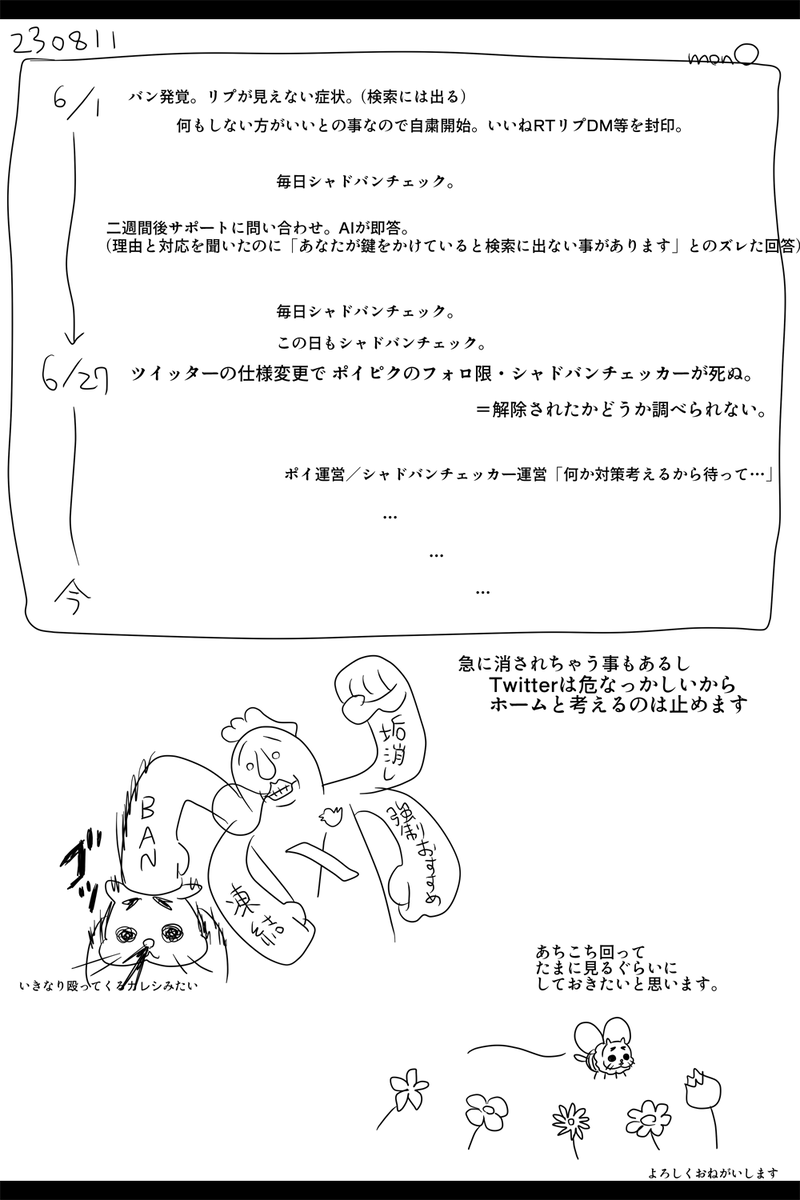 230811
monO
6/1
バン発覚。リプが見えない症状。(検索には出る)
何もしない方がいいとの事なので自粛開始。いいねRTリプDM等を封印。
毎日シャドバンチェック。
二週間後サポートに問い合わせ。AIが即答。
(理由と対応を聞いたのに「あなたが鍵をかけていると検索に出ない事があります」とのズレた回答)
毎日シャドバンチェック。
この日もシャドバンチェック。
6/27
ツイッターの仕様変更で ポイピクのフォロ限・シャドバンチェッカーが死ぬ。
＝解除されたかどうか調べられない。
ポイ運営／シャドバンチェッカー運営「何か対策考えるから待って…」
…
…
…
今
急に消されちゃう事もあるし
Twitterは危なっかしいから
ホームと考えるのは止めます
垢消し
BAN
強制おすすめ
凍結
ゴッ
いきなり殴ってくるカレシみたい
あちこち回って
たまに見るぐらいに
しておきたいと思います。
よろしくおねがいします